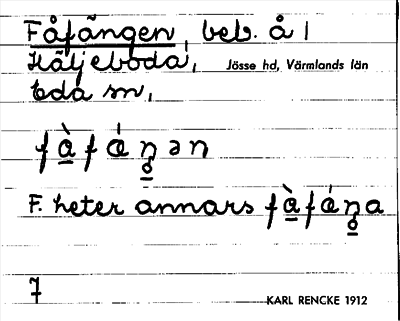 Fåfängen, beb. å
Häljeboda, Jösse hd, Värmlands län
Eda sn,
fàfǽŋən
F. heter annars fàfǽŋa
7
KARL RENCKE 1912